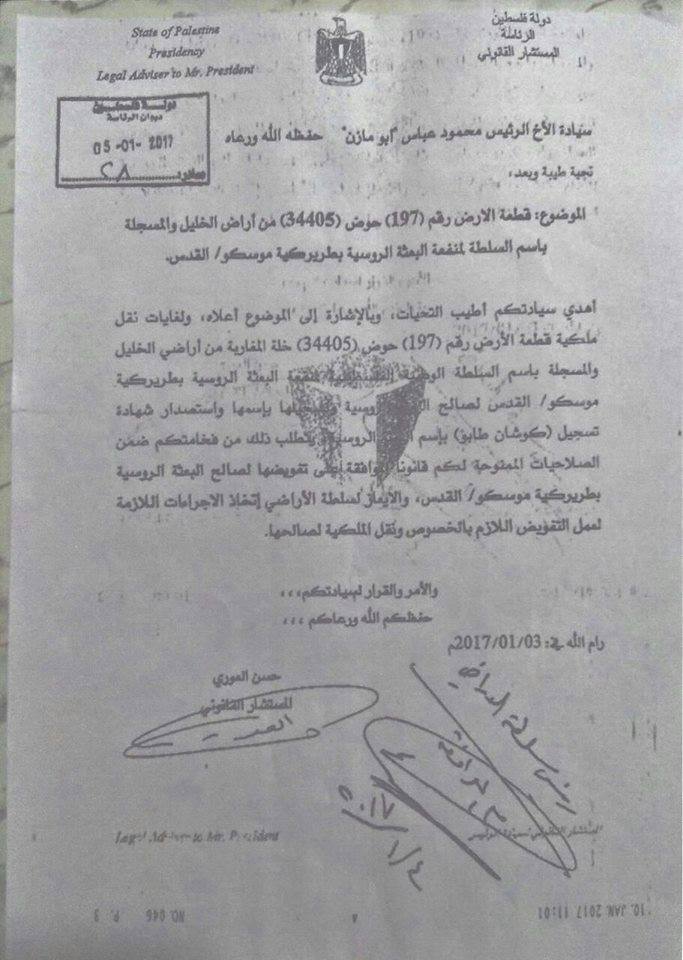 State of Palestine
Presidency
Legal Adviser to Mr. President
دولة فلسطين
الرئاسة
المستشار القانوني
دولة فلسطين
ديوان الرئاسة
05-01-2017
صادر: ٢٨
سيادة الأخ الرئيس محمود عباس "ابو مازن" حفظه الله ورعاه
تحية طيبة وبعد،
الموضوع: قطعة الارض رقم (197) حوض (34405) من أراض الخليل والمسجلة
باسم السلطة لمنفعة البعثة الروسية بطريركية موسكو/ القدس.
أهدي سيادتكم أطيب التحيات، وبالإشارة إلى الموضوع أعلاه، ولغايات نقل
ملكية قطعة الأرض رقم (197) حوض (34405) خلة المغاربة من أراضي الخليل
والمسجلة باسم السلطة الوطنية الفلسطينية لمنفعة البعثة الروسية بطريركية
موسكو/ القدس لصالح البعثة الروسية وتسجيلها بإسمها واستصدار شهادة
تسجيل (كوشان طابو) بإسم البعثة الروسية، يتطلب ذلك من فخامتكم ضمن
الصلاحيات الممنوحة لكم قانونا الموافقة على تفويضها لصالح البعثة الروسية
بطريركية موسكو/ القدس، والايعاز لسلطة الأراضي إتخاذ الاجراءات اللازمة
لعمل التفويض اللازم بالخصوص ونقل الملكية لصالحها.
والأمر والقرار لسيادتكم،،،
حفظكم الله ورعاكم ،،،
رام الله في: 2017/01/03م
حسن العوري
المستشار القانوني
رئيس سلطة الاراضي
موافقة
٢٠١٧/١/٤
Legal Adviser to Mr. President
10. JAN. 2017 11:01
NO. 046 P. 3